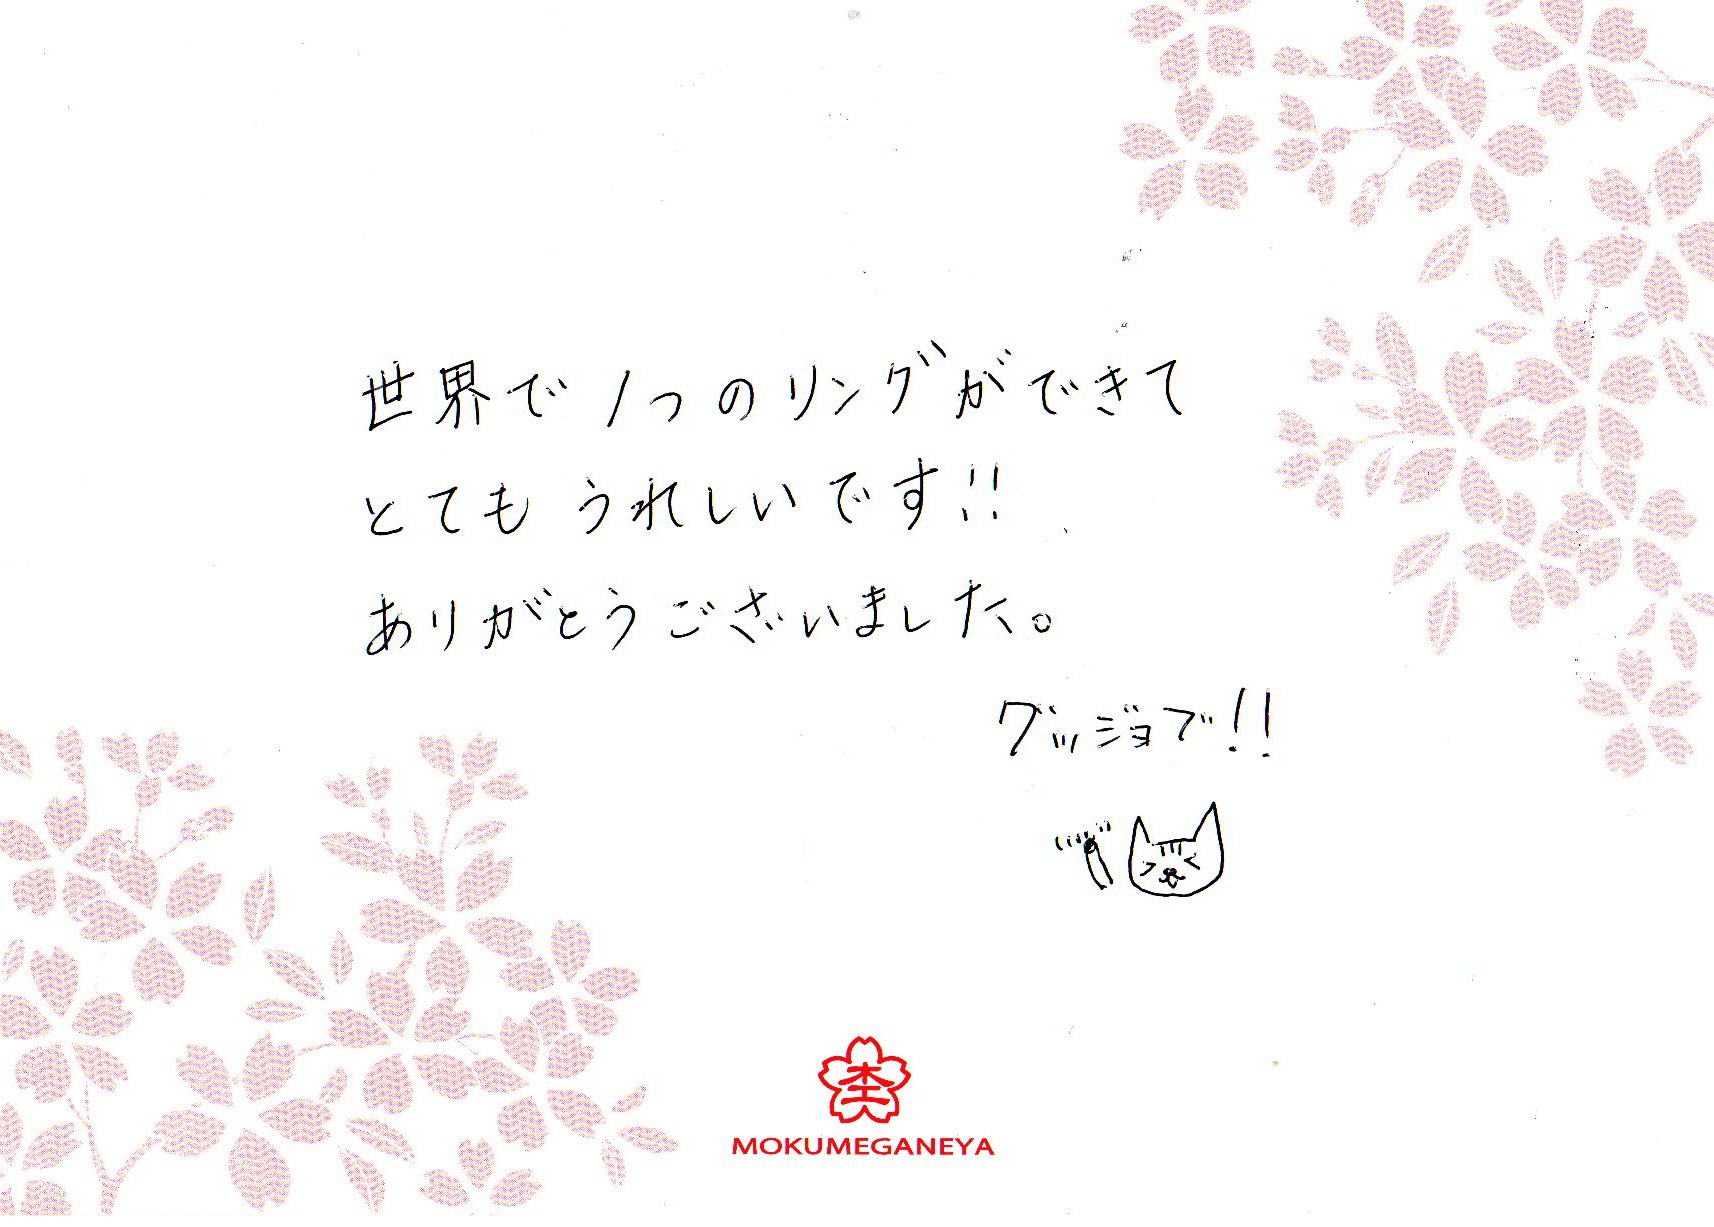 世界で1つのリングができて
とても うれしいです!!
ありがとうございました。
グッジョブ!!
MOKUMEGANEYA